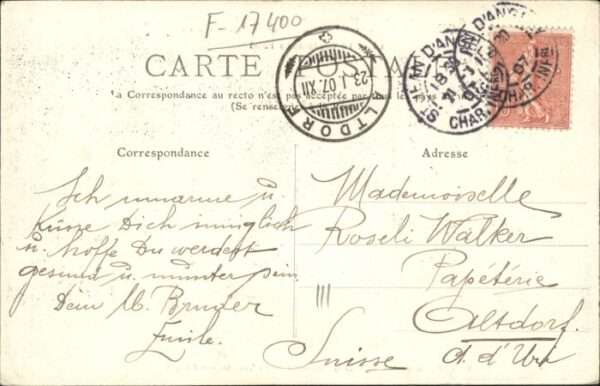 F-17400
CARTE POSTALE
La Correspondance au recto n'est pas acceptée par tous les pays
(Se renseigner
ALTDORF
23.I.07.XII
ST JEAN D'ANGELY
CHAR. INFRE
Correspondance
Adresse
Ich umarme u.
küsse Dich inniglich
u. hoffe Du werdest
gesund u. munter sein
Dein lb. Bruder
Emile.
Mademoiselle
Roseli Walker
Papéterie
Altdorf.
Ct. d'Uri
Suisse